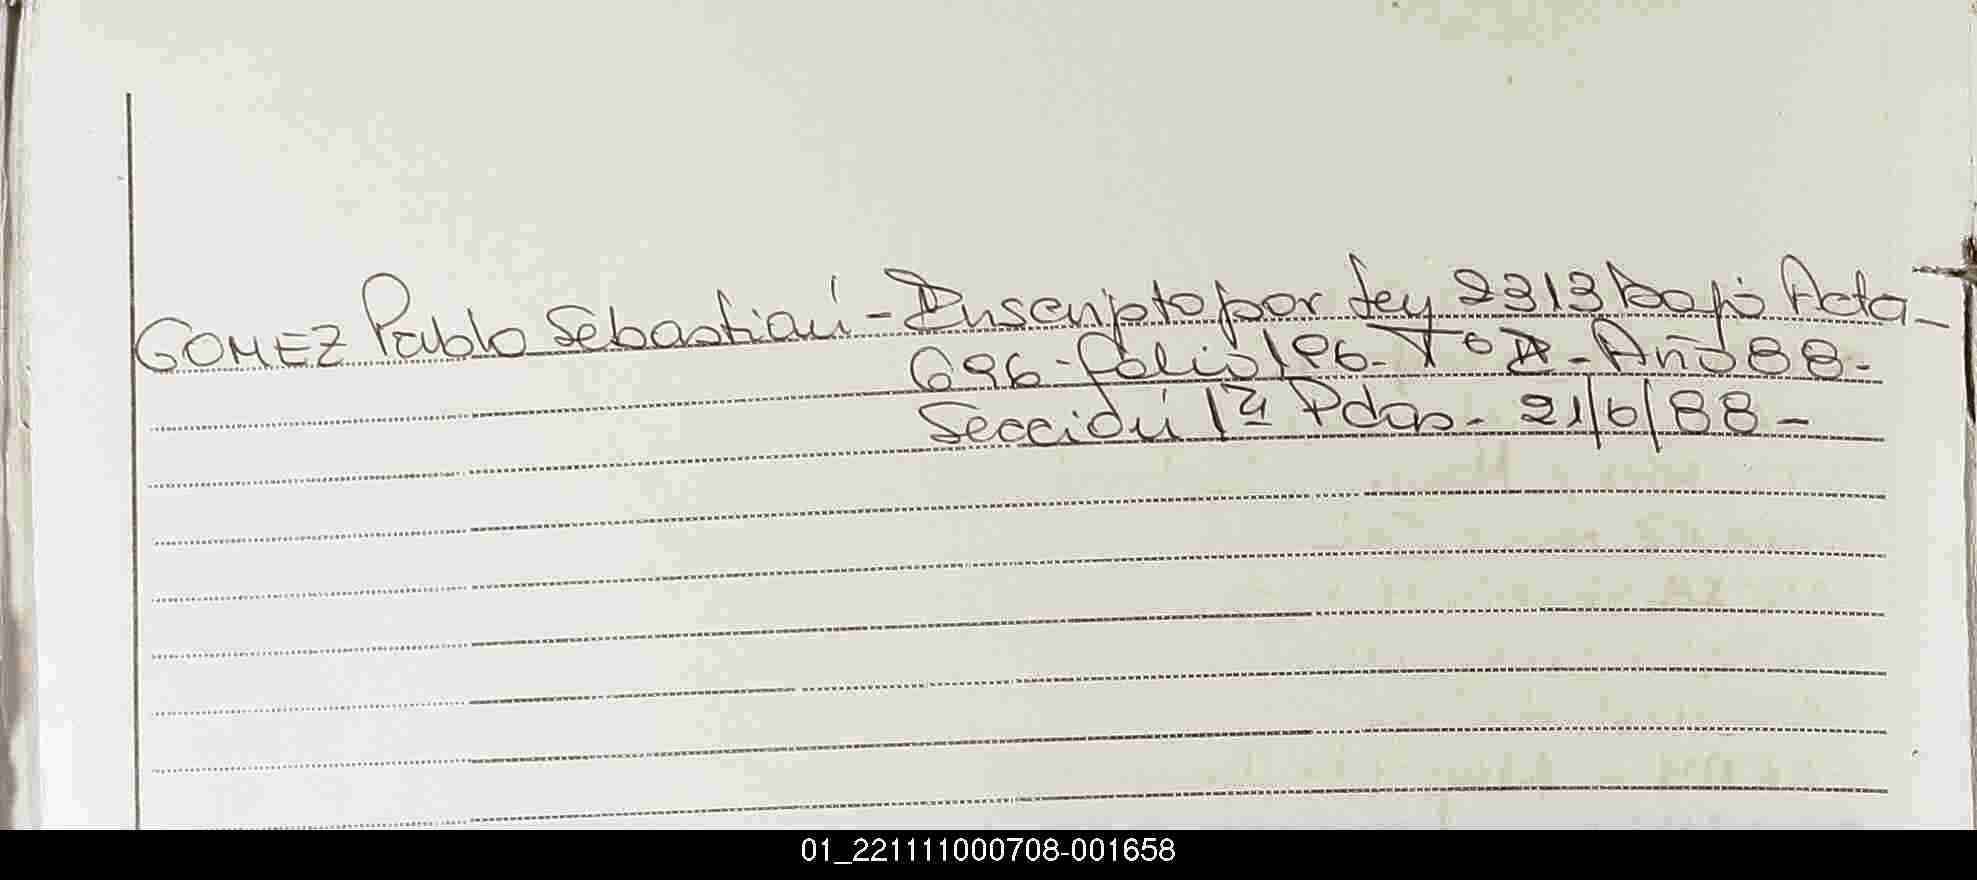 GOMEZ Pablo Sebastian - Inscripto por Ley 2313 bajo Acta -
696 - folio 196 - Tº - Año 88 -
Sección 1ª Pdas - 21/6/88 -
01_221111000708-001658